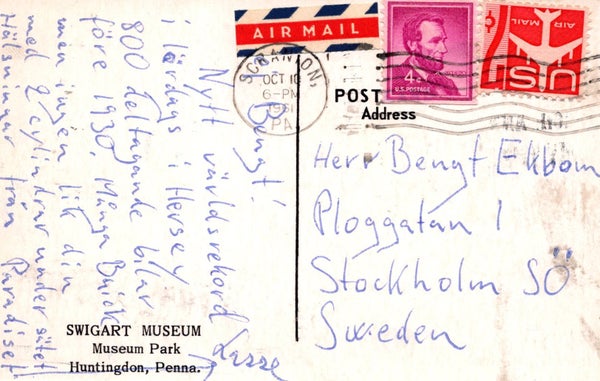 AIR MAIL
SCRANTON,
OCT 10
6-PM
1961
PA.
4¢
U.S. POSTAGE
AIR MAIL
US
POST
Address
Bengt!
Nytt världsrekord
i lördags i Hersey
800 deltagande bilar
före 1930. Många Buick
men ingen lik din
med 2 cylindrar under sätet!
Hälsningar från Paradiset
Lasse
Herr Bengt Ekbom
Ploggatan 1
Stockholm SÖ
Sweden
SWIGART MUSEUM
Museum Park
Huntingdon, Penna.